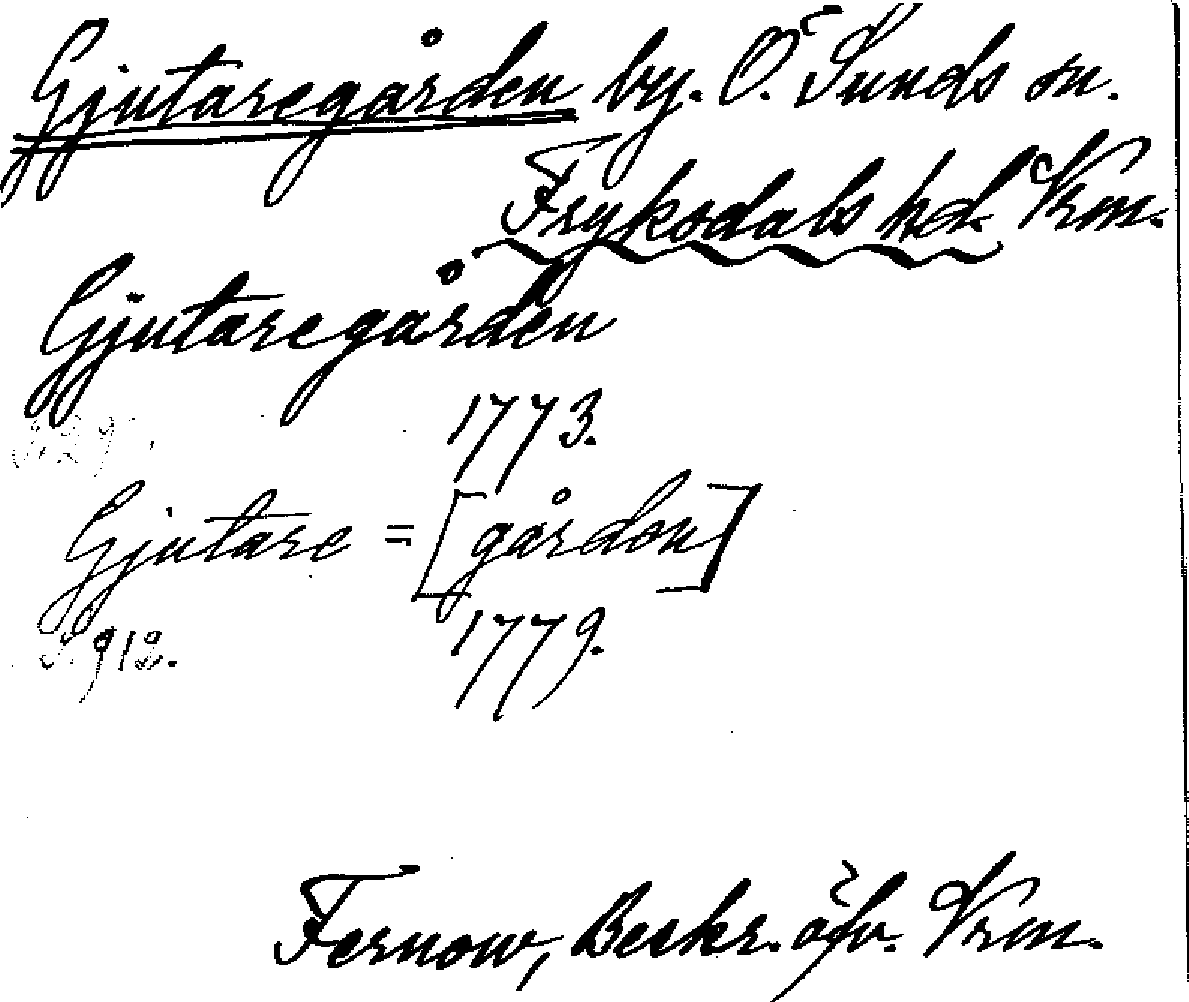 Gjutaregården by. Ö. Sunds sn.
Fryksdals hd. Vrm.
Gjutaregården
1773.
S. 29.
Gjutare=[gården]
1779.
S. 912.
Fernow, Beskr. öfv. Vrm.